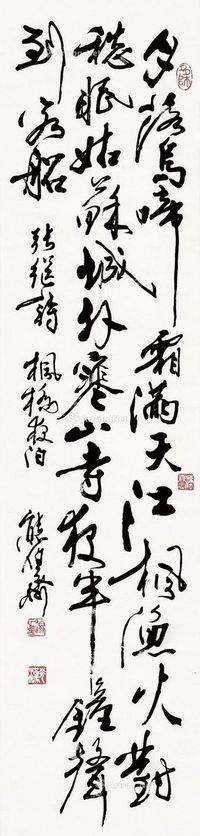 月落烏啼霜滿天江楓漁火對
愁眠姑蘇城外寒山寺夜半鐘聲
到客船 張繼詩 楓橋夜泊 熊伯齊